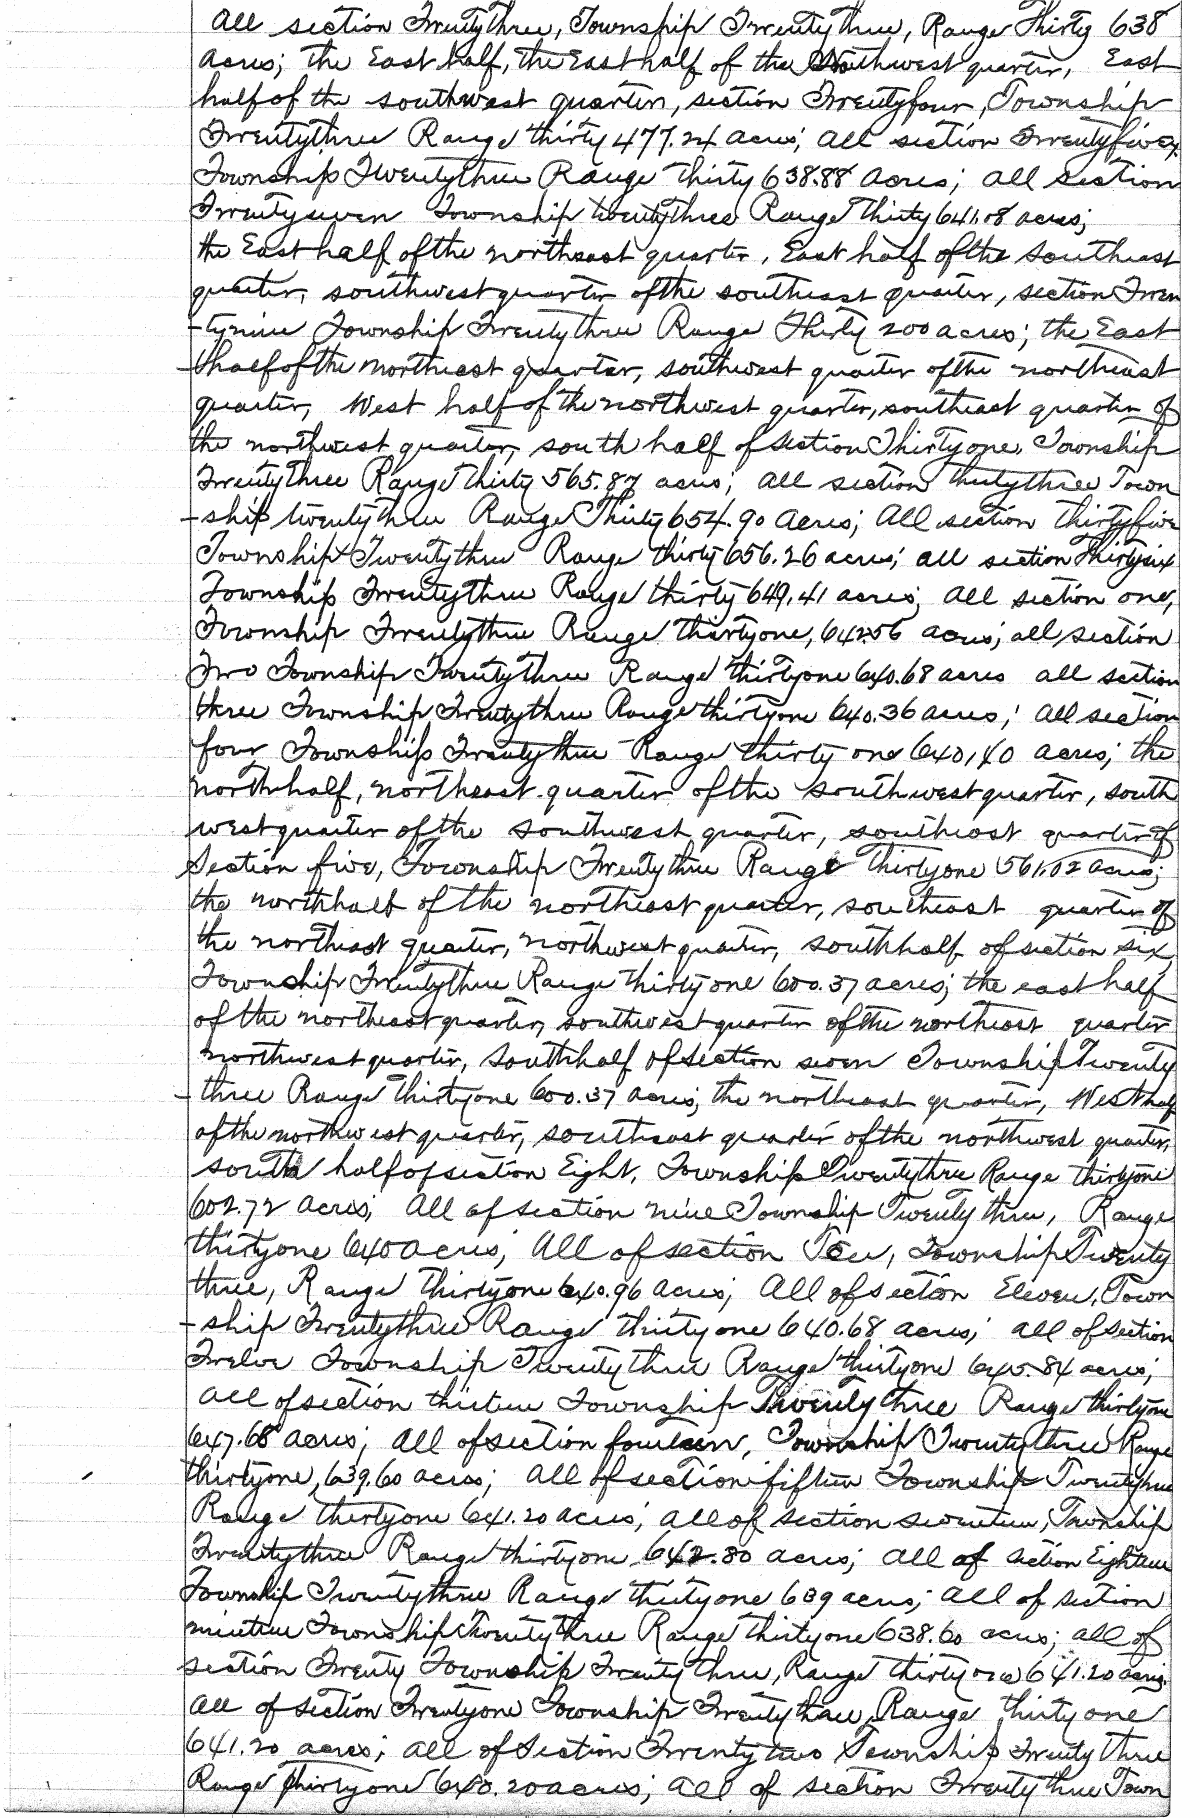 All section Twentythree, Township Twentythree, Range Thirty 638
Acres; the East half, the East half of the Northwest quarter, East
half of the southwest quarter, section Twentyfour, Township
Twentythree Range thirty 477.24 acres; all section Twentyfive,
Township Twentythree Range Thirty 638.88 acres; all section
Twentyseven Township twentythree Range Thirty 641.08 acres;
the East half of the northeast quarter, East half of the southeast
quarter, southwest quarter of the southeast quarter, section Twen
-tynine Township Twentythree Range Thirty 200 acres; the East
-half of the northeast quarter, southwest quarter of the northeast
quarter, West half of the northwest quarter, southeast quarter of
the northwest quarter, south half of section Thirtyone, Township
Twentythree Range thirty 565.87 acres; all section thirtythree Town
-ship twentythree Range Thirty 654.90 Acres; All section thirtyfive
Township Twentythree Range thirty 656.26 acres; all section Thirtysix
Township Twentythree Range thirty 649.41 acres; all section one,
Township Twentythree Range thirtyone, 642.56 acres; all section
Two Township Twentythree Range thirtyone 640.68 acres all section
three Township Twentythree Range thirtyone 640.36 acres; all section
four Township Twentythree Range thirty one 640,40 acres; the
north half, northeast quarter of the southwest quarter, south
west quarter of the southwest quarter, southeast quarter of
Section five, Township Twentythree Range Thirtyone 561.02 acres;
the north half of the northeast quarter, southeast quarter of
the northeast quarter, northwest quarter, south half of section six,
Township Twentythree Range thirtyone 600.37 acres; the east half
of the northeast quarter, southwest quarter of the northeast quarter
northwest quarter, south half of section seven Township Twenty
-three Range Thirtyone 600.37 acres; the northeast quarter, West half
of the northwest quarter, southeast quarter of the northwest quarter,
south half of section Eight, Township Twentythree Range thirtyone
602.72 acres; All of section nine Township Twenty three, Range
thirtyone 640 acres; All of section Ten, Township Twenty
three, Range Thirtyone 640.96 acres; All of section Eleven, Town
-ship Twentythree Range thirtyone 640.68 acres; all of section
Twelve Township Twenty three Range thirtyone 640.84 acres;
All of section thirteen Township Twenty three Range thirtyone
647.68 acres; All of section fourteen, Township Twentythree Range
thirtyone, 639.60 acres; All of section fifteen Township Twentythree
Range thirtyone 641.20 acres; all of section seventeen, Township
Twentythree Range thirtyone 642.80 acres; all of section Eighteen
Township Twentythree Range thirtyone 639 acres; All of section
nineteen Township twentythree Range thirtyone 638.60 acres; all of
section Twenty Township Twenty three, Range thirty one 641.20 acres.
All of section Twentyone Township Twenty three, Range thirty one
641.20 acres; all of section Twenty two Township Twenty three
Range thirtyone 640.20 acres; all of section Twenty three Town